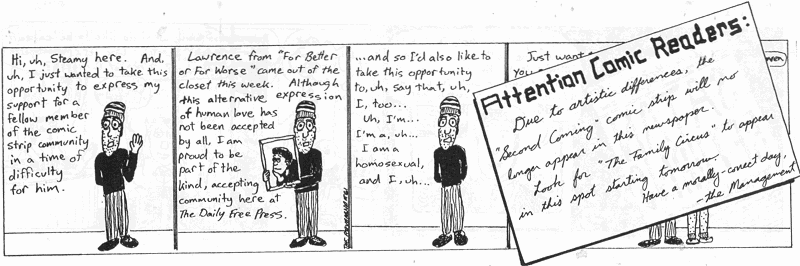 Hi, uh, Steamy here. And,
uh, I just wanted to take this
opportunity to express my
support for a
fellow member
of the comic
strip community
in a time of
difficulty
for him.
Lawrence from "For Better
or For Worse" came out of the
closet this week. Although
this alternative expression
of human love has
not been accepted
by all, I am
proud to be
part of the
kind, accepting
community here at
The Daily Free Press.
...and so I'd also like to
take this opportunity
to, uh, say that, uh,
I, too...
Uh, I'm...
I'm a, uh...
I am a
homosexual,
and I, uh...
Just want
you
Attention Comic Readers:
Due to artistic differences, the
"Second Coming" comic strip will no
longer appear in this newspaper.
Look for "The Family Circus" to appear
in this spot starting tomorrow.
Have a morally-correct day,
-the Management